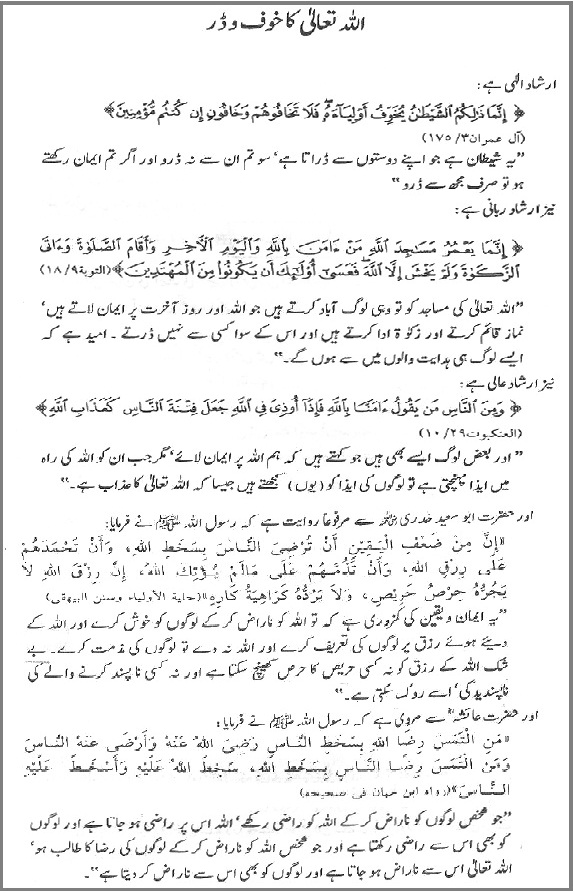 اللہ تعالیٰ کا خوف و ڈر
ارشاد الٰہی ہے:
﴿ إِنَّمَا ذَٰلِكُمُ الشَّيْطَانُ يُخَوِّفُ أَوْلِيَاءَهُ فَلَا تَخَافُوهُمْ وَخَافُونِ إِن كُنتُم مُّؤْمِنِينَ ﴾
(آل عمران۳/ ۱۷۵)
”یہ شیطان ہے جو اپنے دوستوں سے ڈراتا ہے‘ سو تم ان سے نہ ڈرو اور اگر تم ایمان رکھتے
ہو تو صرف مجھ سے ڈرو“
نیز ارشاد ربانی ہے:
﴿ إِنَّمَا يَعْمُرُ مَسَاجِدَ اللَّهِ مَنْ ءَامَنَ بِاللَّهِ وَالْيَوْمِ الْآخِرِ وَأَقَامَ الصَّلَوٰةَ وَءَاتَى
الزَّكَوٰةَ وَلَمْ يَخْشَ إِلَّا اللَّهَ فَعَسَىٰ أُولَٰئِكَ أَن يَكُونُوا مِنَ الْمُهْتَدِينَ ﴾ (التوبۃ۹/ ۱۸)
”اللہ تعالیٰ کی مساجد کو تو وہی لوگ آباد کرتے ہیں جو اللہ اور روز آخرت پر ایمان لاتے ہیں‘
نماز قائم کرتے اور زکوٰۃ ادا کرتے ہیں اور اس کے سوا کسی سے نہیں ڈرتے۔ امید ہے کہ
ایسے لوگ ہی ہدایت والوں میں سے ہوں گے۔“
نیز ارشاد عالی ہے:
﴿ وَمِنَ النَّاسِ مَن يَقُولُ ءَامَنَّا بِاللَّهِ فَإِذَا أُوذِيَ فِي اللَّهِ جَعَلَ فِتْنَةَ النَّاسِ كَعَذَابِ اللَّهِ ﴾
(العنکبوت۲۹/ ۱۰)
”اور بعض لوگ ایسے بھی ہیں جو کہتے ہیں کہ ہم اللہ پر ایمان لائے‘ مگر جب ان کو اللہ کی راہ
میں ایذا پہنچتی ہے تو لوگوں کی ایذا کو (یوں) سمجھتے ہیں جیسا کہ اللہ تعالیٰ کا عذاب ہے۔“
اور حضرت ابو سعید خدری رضی اللہ عنہ سے مرفوعاً روایت ہے کہ رسول اللہ ﷺ نے فرمایا:
«إِنَّ مِنْ ضَعْفِ الْيَقِيْنِ أَنْ تُرْضِيَ النَّاسَ بِسَخَطِ اللهِ، وَأَنْ تَحْمَدَهُمْ
عَلَى رِزْقِ اللهِ، وَأَنْ تَذُمَّهُمْ عَلَى مَالَمْ يُؤْتِكَ اللهُ، إِنَّ رِزْقَ اللهِ لاَ
يَجُرُّهُ حِرْصُ حَرِيْصٍ، وَلاَ يَرُدُّهُ كَرَاهِيَةُ كَارِهٍ»(حلية الأولياء وسنن البيهقي)
”یہ ایمان و یقین کی کمزوری ہے کہ تو اللہ کو ناراض کر کے لوگوں کو خوش کرے اور اللہ کے
دیئے ہوئے رزق پر لوگوں کی تعریف کرے اور اللہ نہ دے تو لوگوں کی مذمت کرے۔ بے
شک اللہ کے رزق کو نہ کسی حریص کا حرص کھینچ سکتا ہے اور نہ کسی نا پسند کرنے والے کی
ناپسندیدگی‘ اسے روک سکتی ہے۔“
اور حضرت عائشہ رضی اللہ عنہا سے مروی ہے کہ رسول اللہ ﷺ نے فرمایا:
«مَنِ الْتَمَسَ رِضَا اللهِ بِسَخَطِ النَّاسِ رَضِيَ اللهُ عَنْهُ وَأَرْضَى عَنْهُ النَّاسَ
وَمَنِ الْتَمَسَ رِضَا النَّاسِ بِسَخَطِ اللهِ، سَخِطَ اللهُ عَلَيْهِ وَأَسْخَطَ عَلَيْهِ
النَّاسَ»(رواه ابن حبان في صحيحه)
”جو شخص لوگوں کو ناراض کر کے اللہ کو راضی رکھے‘ اللہ اس پر راضی ہو جاتا ہے اور لوگوں
کو بھی اس سے راضی رکھتا ہے اور جو شخص اللہ کو ناراض کر کے لوگوں کی رضا کا طالب ہو‘
اللہ تعالیٰ اس سے ناراض ہو جاتا ہے اور لوگوں کو بھی اس سے ناراض کر دیتا ہے“۔